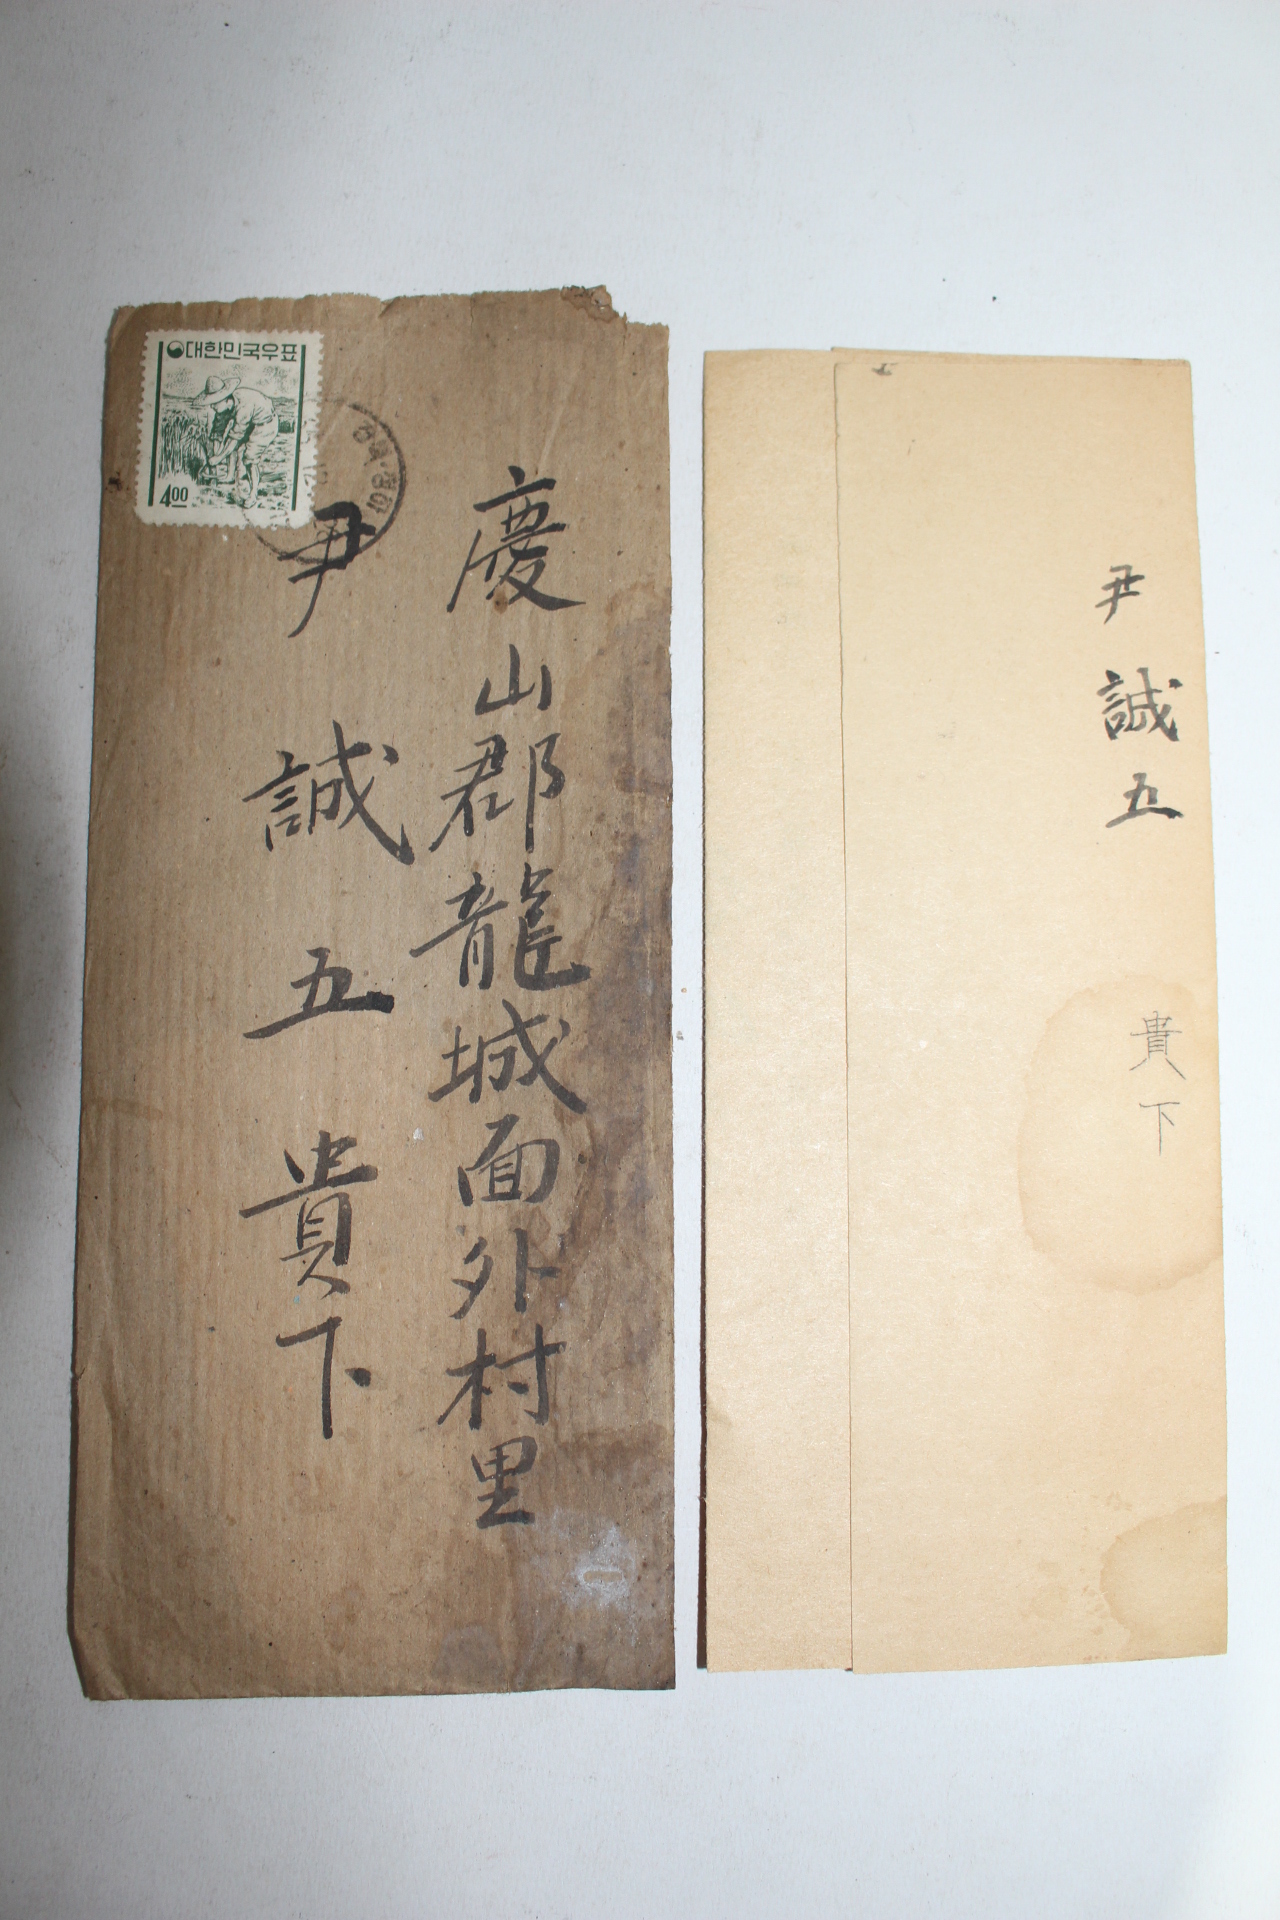 대한민국우표
4.00
慶山郡龍城面外村里
尹誠五貴下
尹誠五 貴下